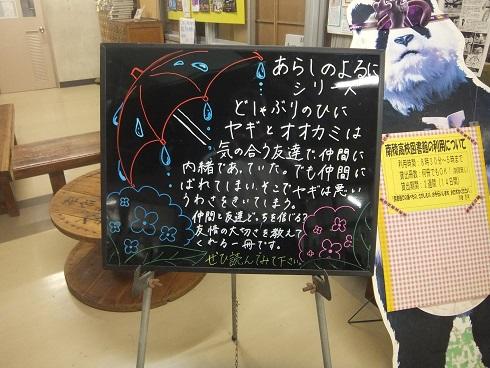 あらしのよるに
シリーズ
どしゃぶりのひに
ヤギとオオカミは
気の合う友達で、仲間に
内緒であっていた。でも仲間に
ばれてしまい、そこでヤギは悪い
うわさをきいてしまう。
仲間と友達どっちを信じる?
友情の大切さを教えて
くれる一冊です。
ぜひ読んでみて下さい
南稜高校図書館の利用について
利用時間:8時30分~5時まで
貸出冊数:何冊でもOK!
貸出期間:2週間(14日間)